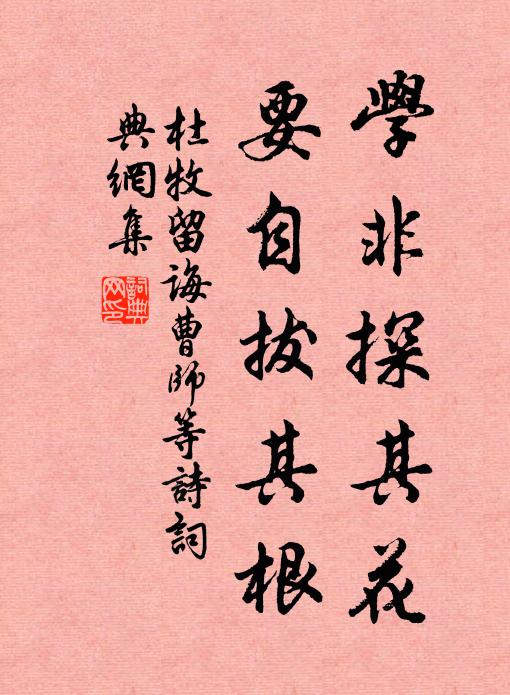 學非探其花
要自拔其根
杜牧留誨曹師等詩詞
典網集
詞典
网印